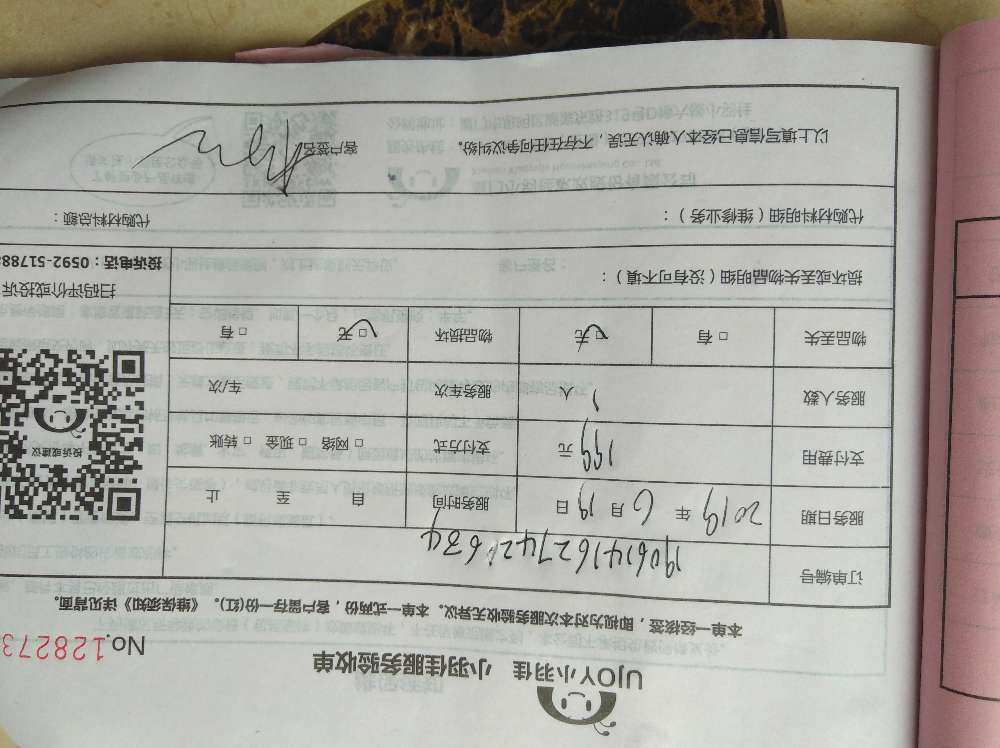 UJOY小羽佳 小羽佳服务验收单
No.128273
本单一经核签，即视为对本次服务验收无异议。本单一式两份，客户留存一份(红)。《维保须知》详见背面。
订单编号 190614162742634
服务日期 2019 年 6 月 19 日 服务时间 自 至 止
支付费用 199 元 支付方式 □ 网络 □ 现金 □ 转账
服务人数 1 人 服务车次 车/次
物品丢失 □ 有 □ 无 物品损坏 □ 无 □ 有
投诉或建议
扫码评价或投诉
投诉电话：0592-51788
损坏或丢失物品明细（没有可不填）：
代购材料明细（维修业务）： 代购材料总额：
以上填写信息已经本人确认无误，不存在任何争议纠纷。 客户签名